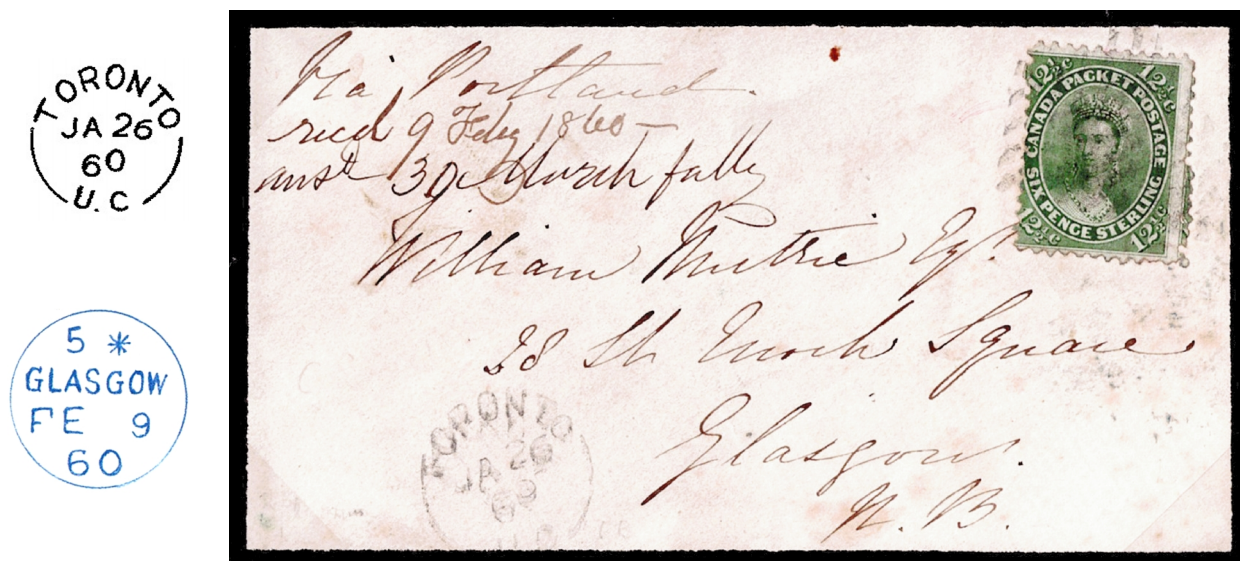 TORONTO
JA 26
60
U.C
5 *
GLASGOW
FE 9
60
Via Portland.
recd 9 Feby 1860 -
ansd 30 March fully
William Muthie Esqr.
28 St Enoch Square
Glasgow.
N.B.
12½c 12½c
CANADA PACKET POSTAGE
SIX PENCE STERLING
12½c 12½c
TORONTO
JA 26
60
U.C